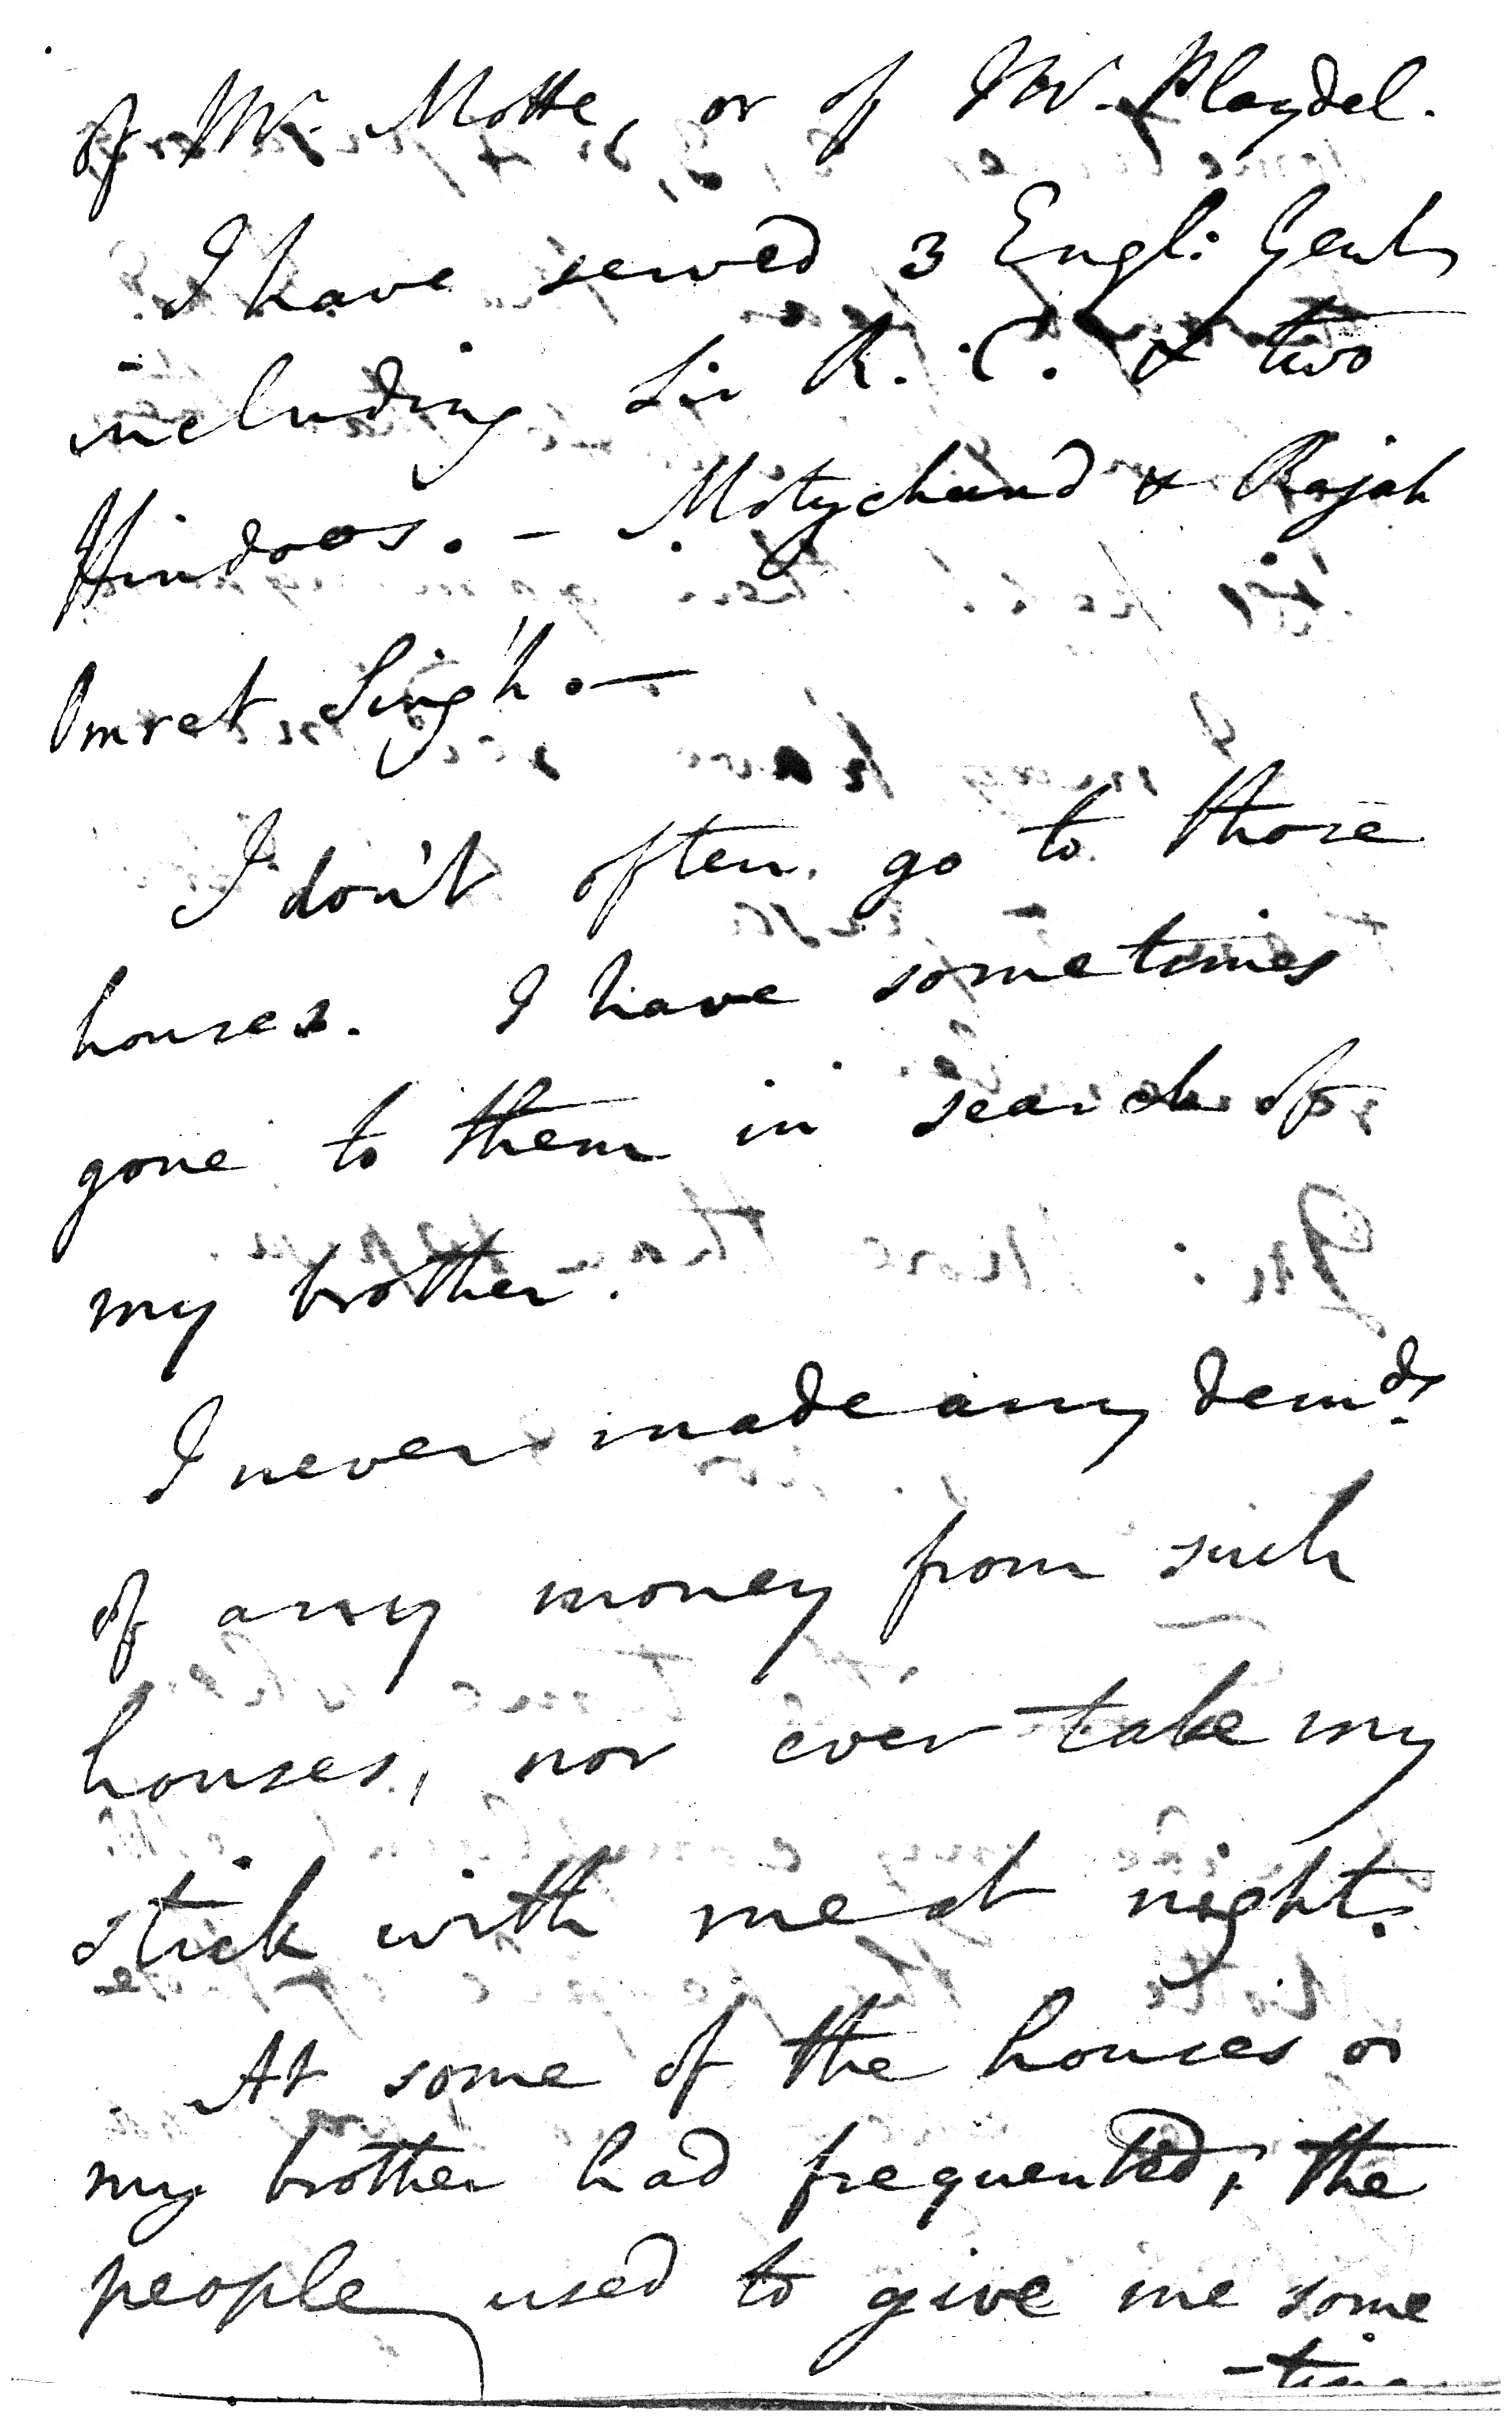 of Mr. Motte, or of Mr. Playdel.
I have served 3 Engl: Gents
including Sir R. C. & two
Hindoos. - Motychund & Rajah
Omret Singh. —
I don't often go to those
houses. I have sometimes
gone to them in search of
my brother.
I never made any demds.
of any money from such
houses, nor ever take my
stick with me at night.
At some of the houses
my brother had frequented, the
people used to give me some